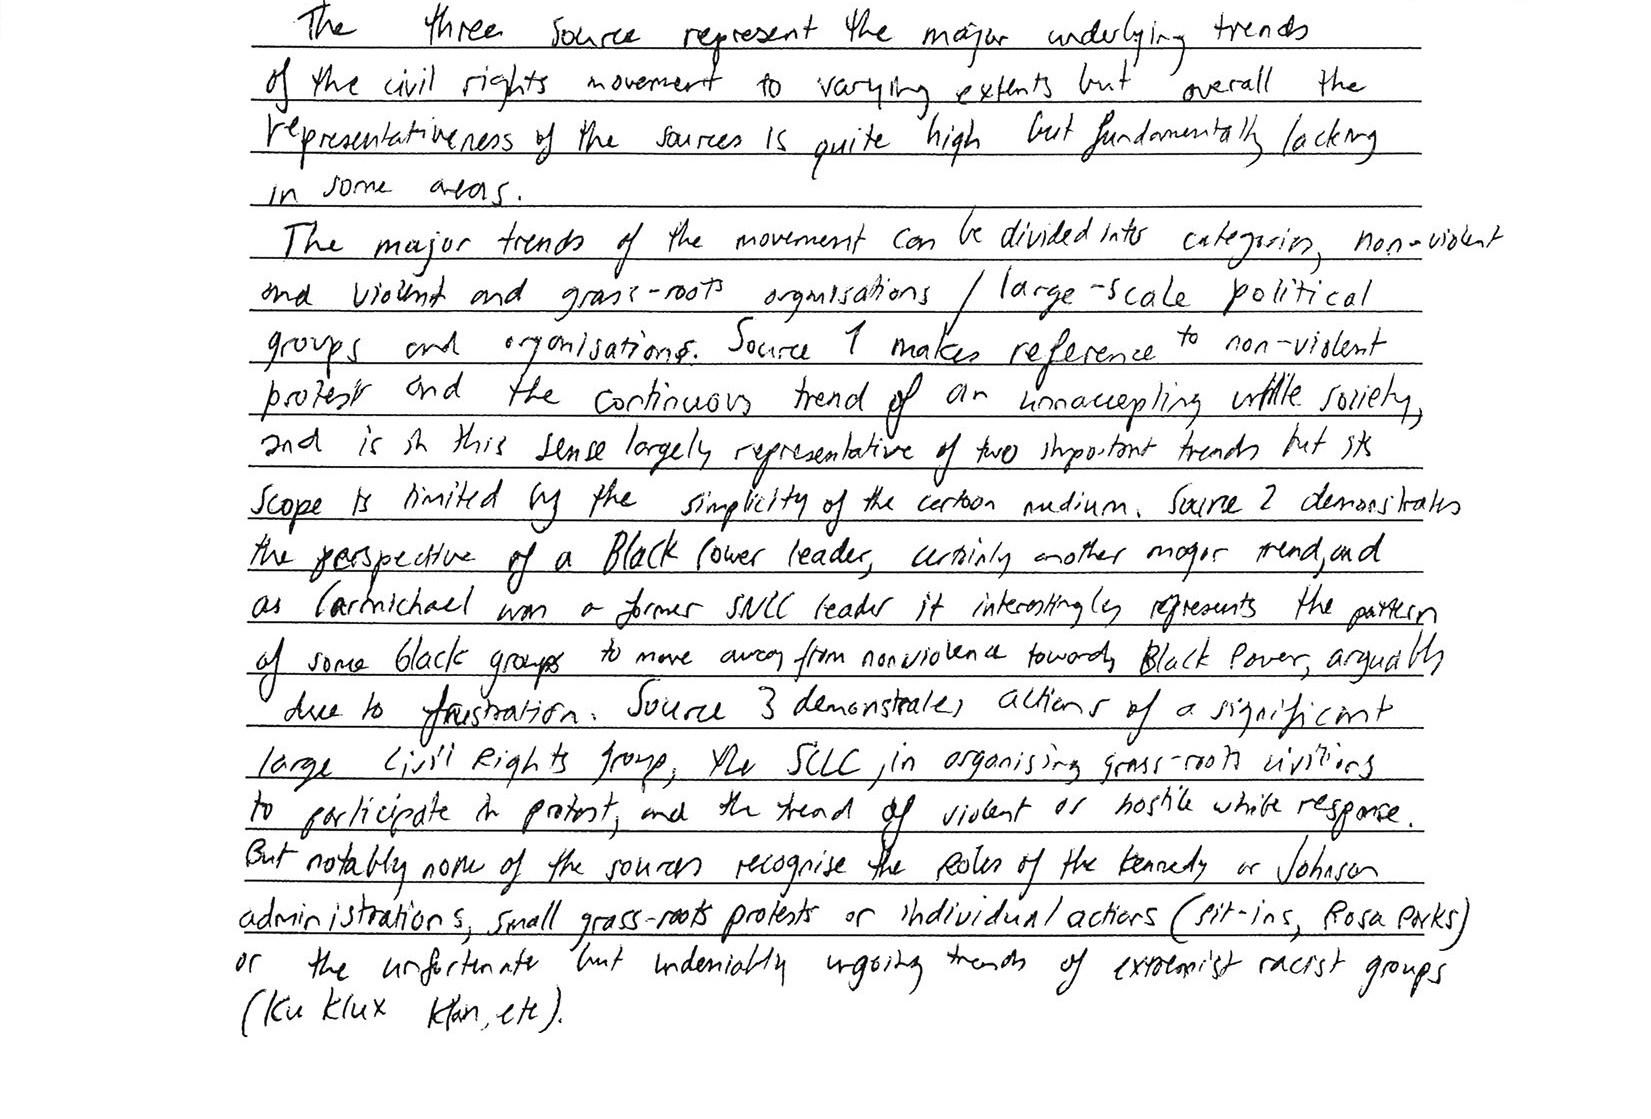 The three source represent the major underlying trends
of the civil rights movement to varying extents but overall the
representativeness of the sources is quite high but fundamentally lacking
in some areas.
The major trends of the movement can be divided into categories, non-violent
and violent and grass-roots organisations / large-scale political
groups and organisations. Source 1 makes reference to non-violent
protest and the continuous trend of an unnaccepting white society,
and is in this sense largely representative of two important trends but its
scope is limited by the simplicity of the cartoon medium. Source 2 demonstrates
the perspective of a Black Power leader, certainly another major trend, and
as Carmichael was a former SNCC leader it interestingly represents the pattern
of some black groups to move away from nonviolence towards Black Power, arguably
due to frustration. Source 3 demonstrates actions of a significant
large Civil Rights group, the SCLC, in organising grass-roots civilians
to participate in protest, and the trend of violent or hostile white response.
But notably none of the sources recognise the roles of the Kennedy or Johnson
administrations, small grass-roots protests or individual actions (sit-ins, Rosa Parks)
or the unfortunate but undeniably ongoing trends of extremist racist groups
(Ku Klux Klan, etc).